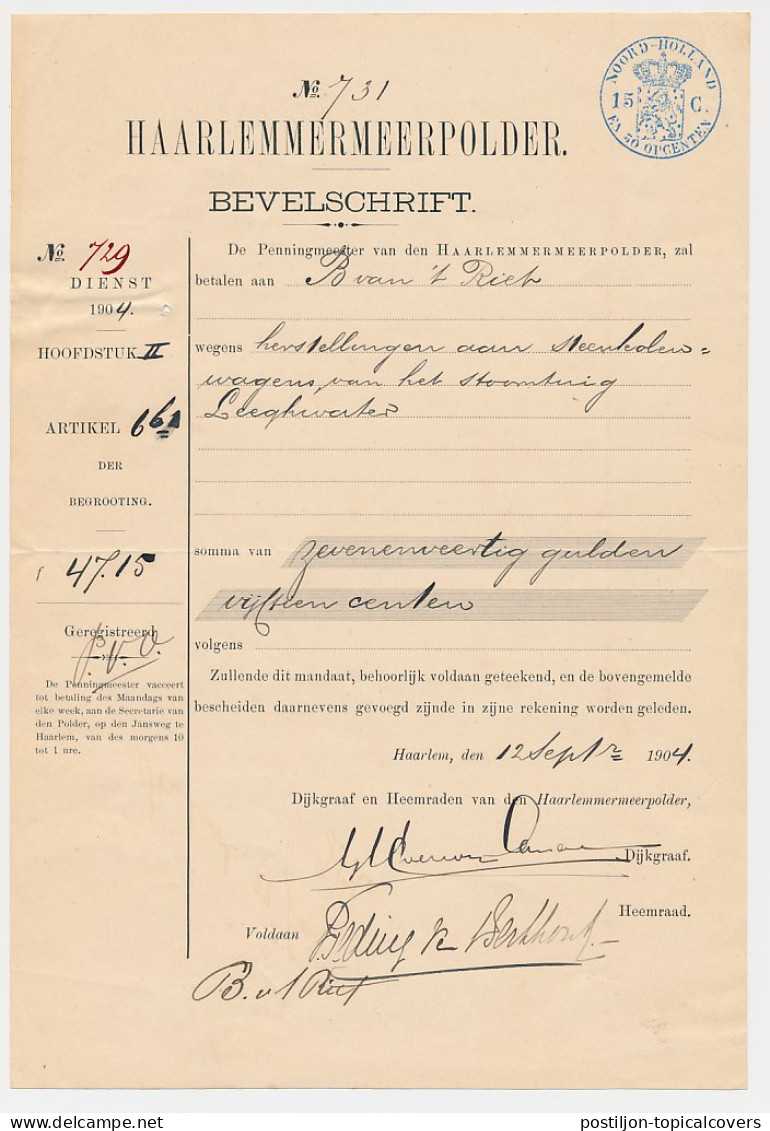 No. 731
NOORD-HOLLAND
15 C.
EN 50 OPCENTEN
HAARLEMMERMEERPOLDER.
BEVELSCHRIFT.
No. 729
DIENST
1904.
HOOFDSTUK II
ARTIKEL
DER
BEGROOTING.
f 47.15
Geregistreerd
De Penningmeester vacceert
tot betaling des Maandags van
elke week, aan de Secretarie van
den Polder, op den Jansweg te
Haarlem, van des morgens 10
tot 1 ure.
De Penningmeester van den HAARLEMMERMEERPOLDER, zal
betalen aan B van 't Riet
wegens herstellingen aan steenkolen=
wagens, van het stoomtuig
Leeghwater
somma van zevenenveertig gulden
vijftien centen
volgens
Zullende dit mandaat, behoorlijk voldaan geteekend, en de bovengemelde
bescheiden daarnevens gevoegd zijnde in zijne rekening worden geleden.
Haarlem, den 12 Septr 1904.
Dijkgraaf en Heemraden van den Haarlemmermeerpolder,
Dijkgraaf.
Heemraad.
Voldaan
B. v 't Riet
postiljon-topicalcovers